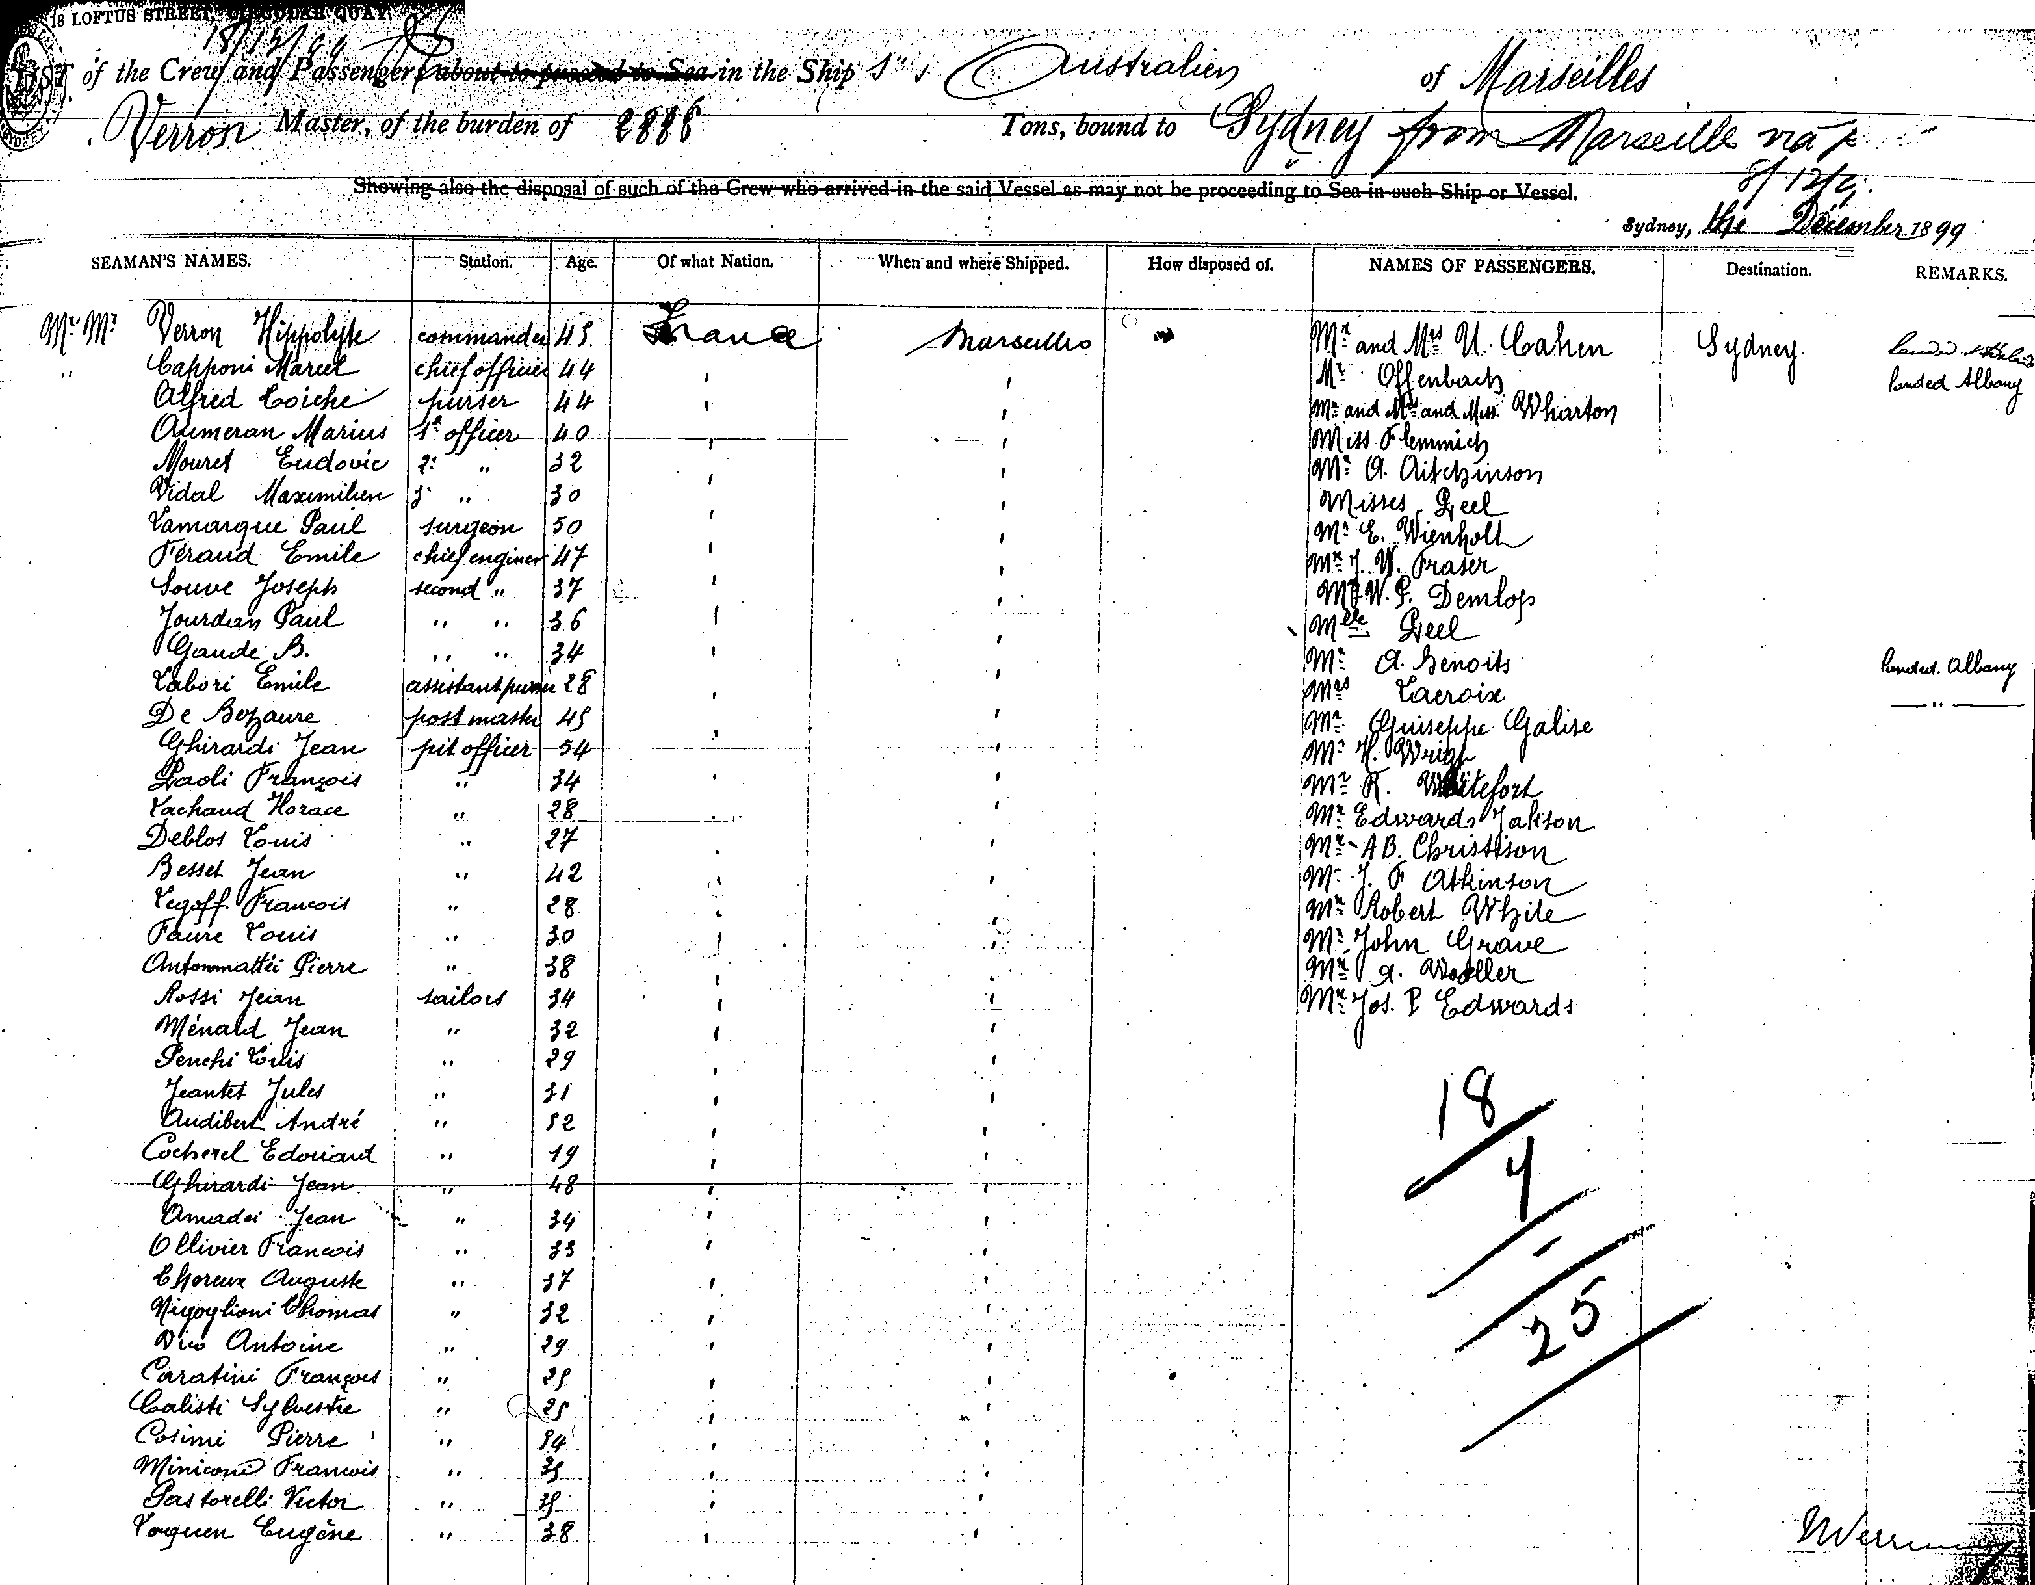 18 LOFTUS STREET, CIRCULAR QUAY.
18/12/99
LIST of the Crew and Passengers about to proceed to Sea in the Ship S.S. Australien of Marseilles
Verron Master, of the burden of 2886 Tons, bound to Sydney from Marseille via
Showing also the disposal of such of the Crew who arrived in the said Vessel as may not be proceeding to Sea in such Ship or Vessel.
Sydney, the December 1899
SEAMAN'S NAMES. Station. Age. Of what Nation. When and where Shipped. How disposed of. NAMES OF PASSENGERS. Destination. REMARKS.
Mr Mr Verron Hippolyte commander 45 France Marseilles Mr and Mrs U. Cahen Sydney.
Capponi Marcel chief officer 44 Mr Offenbach landed Albany
Alfred Coiche purser 44 Mr and Mrs and Miss Wharton
Aumeran Marius 1st officer 40 Miss Flemmich
Mouret Ludovic 2d " 32 Mr A. Aitchinson
Vidal Maximilien 3 " 30 Misses Peel
Lamarque Paul surgeon 50 Mr E. Wienholt
Féraud Emile chief enginer 47 Mr J. W. Fraser
Souve Joseph second " 37 Mr W. P. Demlop
Jourdan Paul " " 36 Mlle Peel
Gaude B. " " 34 Mr A. Benoits landed Albany
Labori Emile assistant purser 28 Mrs Lacroix "
De Bozaure post master 45 Mr Guiseppe Galise
Ghirardi Jean pit officer 54 Mr H. Wrigh
Paoli François " 34 Mr R. Whitefort
Lachaud Horace " 28 Mr Edwards Jakson
Deblos Louis " 27 Mr A B. Christison
Besset Jean " 42 Mr J. F Atkinson
Legoff Francois " 28 Mr Robert White
Faure Louis " 30 Mr John Grave
Antonmattéi Pierre " 38 Mr A. Woeller
Rossi Jean sailors 34 Mr Jos. P Edwards
Ménard Jean " 32
Penchi Luis " 29
Jeantet Jules " 31
Audibert André " 52
Cocherel Edouard " 19
Ghirardi Jean " 48
Amadei Jean " 34
Ollivier Francois " 33
Choreux Auguste " 37
Nigoglioni Thomas " 32
Drio Antoine " 29
Caratini François " 25
Calisti Sylvestre " 25
Cosimi Pierre " 34
Miniconi Francois " 35
Pastorelli Victor " 35
Loquen Eugène " 38
18
4
25